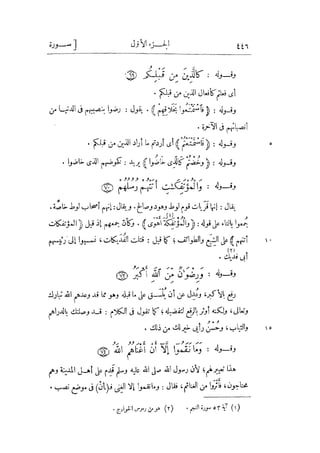 ٤٤٦ الجزء الأول [ سورة
وقوله : كَالَّذِينَ مِن قَبْلِكُمْ (٦٩)
أى فعلتم كأفعال الذين من قبلكم .
وقوله : ( فَاسْتَمْتَعُوا بِخَلَاقِهِمْ ) . يقول : رضوا بنصيبهم فى الدنيا من
أنصبائهم فى الآخرة .
٥ وقوله : ( فَاسْتَمْتَعْتُمْ ) أى أردتم ما أراد الذين من قبلكم .
وقوله : ( وَخُضْتُمْ كَالَّذِى خَاضُوا ) يريد : كخوضهم الذى خاضوا .
وقوله : وَالْمُؤْتَفِكَاتِ أَتَتْهُمْ رُسُلُهُمْ (٧٠)
يقال : إنها قريات قوم لوط وهود وصالح . ويقال : إنهم أصحاب لوط خاصّة .
جُمعوا بالتاء على قوله : ( وَالْمُؤْتَفِكَةَ أَهْوَى ) (١) . وكأنّ جمعهم إذ قيل ( المؤتفكات
١٠ أتتهم ) على الشِيَع والطوائف ؛ كما قيل : قتلت الفُدَيكات ، نسبوا إلى رئيسهم
أبى فُدَيك (٢) .
وقوله : وَرِضْوَانٌ مِّنَ اللَّهِ أَكْبَرُ (٧٢)
رفع بالأكبر ، وعُدِل عن أن يُنْسَق على ما قبله وهو مما قد وعدهم الله تبارك
وتعالى ، ولكنه أوثر بالرفع لتفضيله ؛ كما تقول فى الكلام : قد وصلتك بالدراهم
١٥ والثياب ، وحُسْنُ رأيى خير لك من ذلك .
وقوله : وَمَا نَقَمُوا إِلَّا أَنْ أَغْنَاهُمُ اللَّهُ (٧٤)
هذا تعيير لهم ؛ لأن رسول الله صلى الله عليه وسلم قدِم على أهل المدينة وهم
محتاجون ، فأثْرَوا من الغنائم ، فقال : وما نقموا إلا الغنى فـ(ـأن) فى موضع نصب .
(١) آية ٥٣ سورة النجم . (٢) هو من رءوس الخوارج .